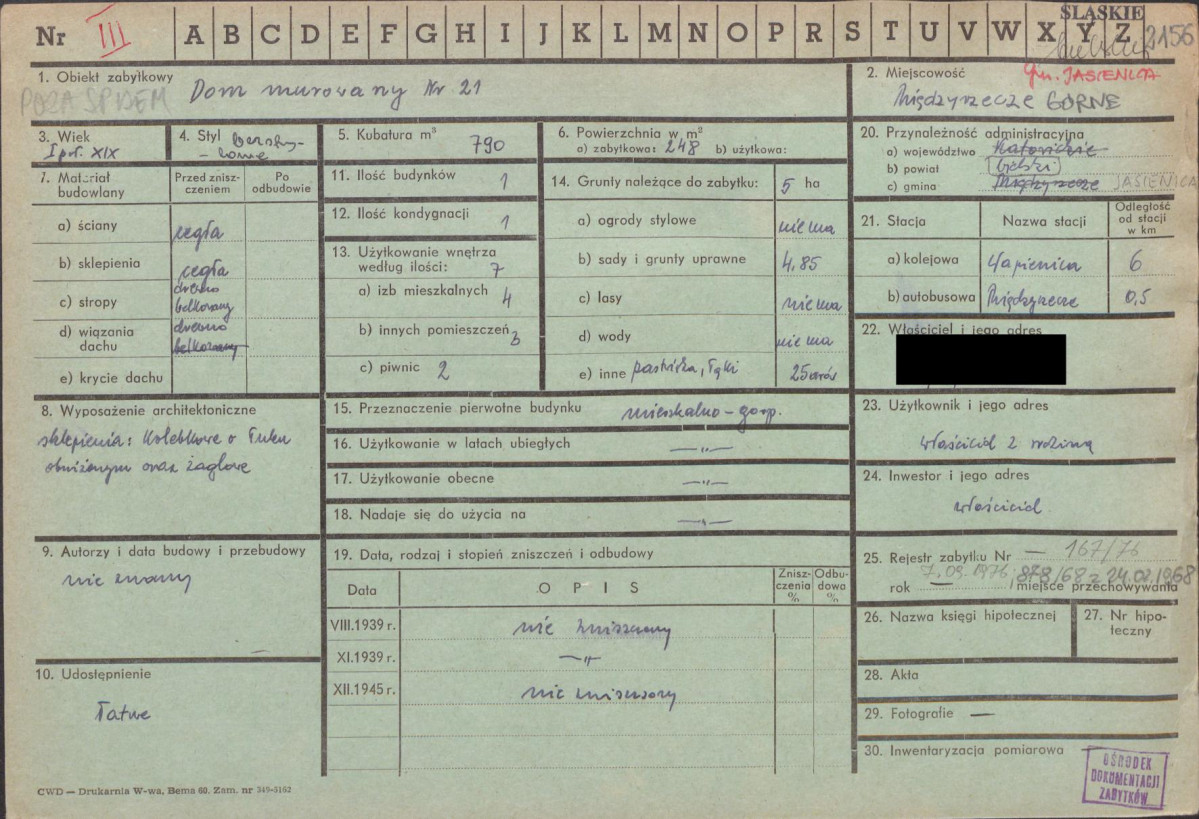 Nr III A B C D E F G H I J K L M N O P R S T U V W X Y Z
ŚLĄSKIE
3156
1. Obiekt zabytkowy
POZA SPISEM
Dom murowany Nr 21
2. Miejscowość
gm. JASIENICA
Międzyrzecze GÓRNE
3. Wiek
I poł. XIX
4. Styl
5. Kubatura m³
790
6. Powierzchnia w m²
a) zabytkowa: 248 b) użytkowa:
7. Materiał budowlany
Przed zniszczeniem
Po odbudowie
a) ściany
cegła
b) sklepienia
cegła
c) stropy
drewno
belkowany
d) wiązania dachu
drewno
belkowany
e) krycie dachu
11. Ilość budynków
1
12. Ilość kondygnacji
1
13. Użytkowanie wnętrza
według ilości: 7
a) izb mieszkalnych 4
b) innych pomieszczeń 3
c) piwnic 2
14. Grunty należące do zabytku: 5 ha
a) ogrody stylowe nie ma
b) sady i grunty uprawne 4,85
c) lasy nie ma
d) wody nie ma
e) inne pastwiska, łąki 25 arów
20. Przynależność administracyjna
a) województwo Katowickie
b) powiat bielski
c) gmina Międzyrzecze JASIENICA
21. Stacja
Nazwa stacji
Odległość od stacji w km
a) kolejowa Wapienica 6
b) autobusowa Międzyrzecze 0,5
22. Właściciel i jego adres
8. Wyposażenie architektoniczne
sklepienia: kolebkowe o łuku
obniżonym oraz żaglowe
15. Przeznaczenie pierwotne budynku mieszkalno-gosp.
16. Użytkowanie w latach ubiegłych —„—
17. Użytkowanie obecne —„—
18. Nadaje się do użycia na —„—
23. Użytkownik i jego adres
właściciel z rodziną
24. Inwestor i jego adres
właściciel
9. Autorzy i data budowy i przebudowy
nie znany
19. Data, rodzaj i stopień zniszczeń i odbudowy
Data
O P I S
Zniszczenia %
Odbudowa %
VIII.1939 r. nie zniszczony
XI.1939 r. —„—
XII.1945 r. nie zniszczony
25. Rejestr zabytku Nr — 167/76
rok 7.09.1976 878/68 z 24.02.1968
miejsce przechowywania
26. Nazwa księgi hipotecznej
27. Nr hipoteczny
10. Udostępnienie
łatwe
28. Akta
29. Fotografie —
30. Inwentaryzacja pomiarowa
OŚRODEK
DOKUMENTACJI
ZABYTKÓW
CWD — Drukarnia W-wa, Bema 60. Zam. nr 349-3162